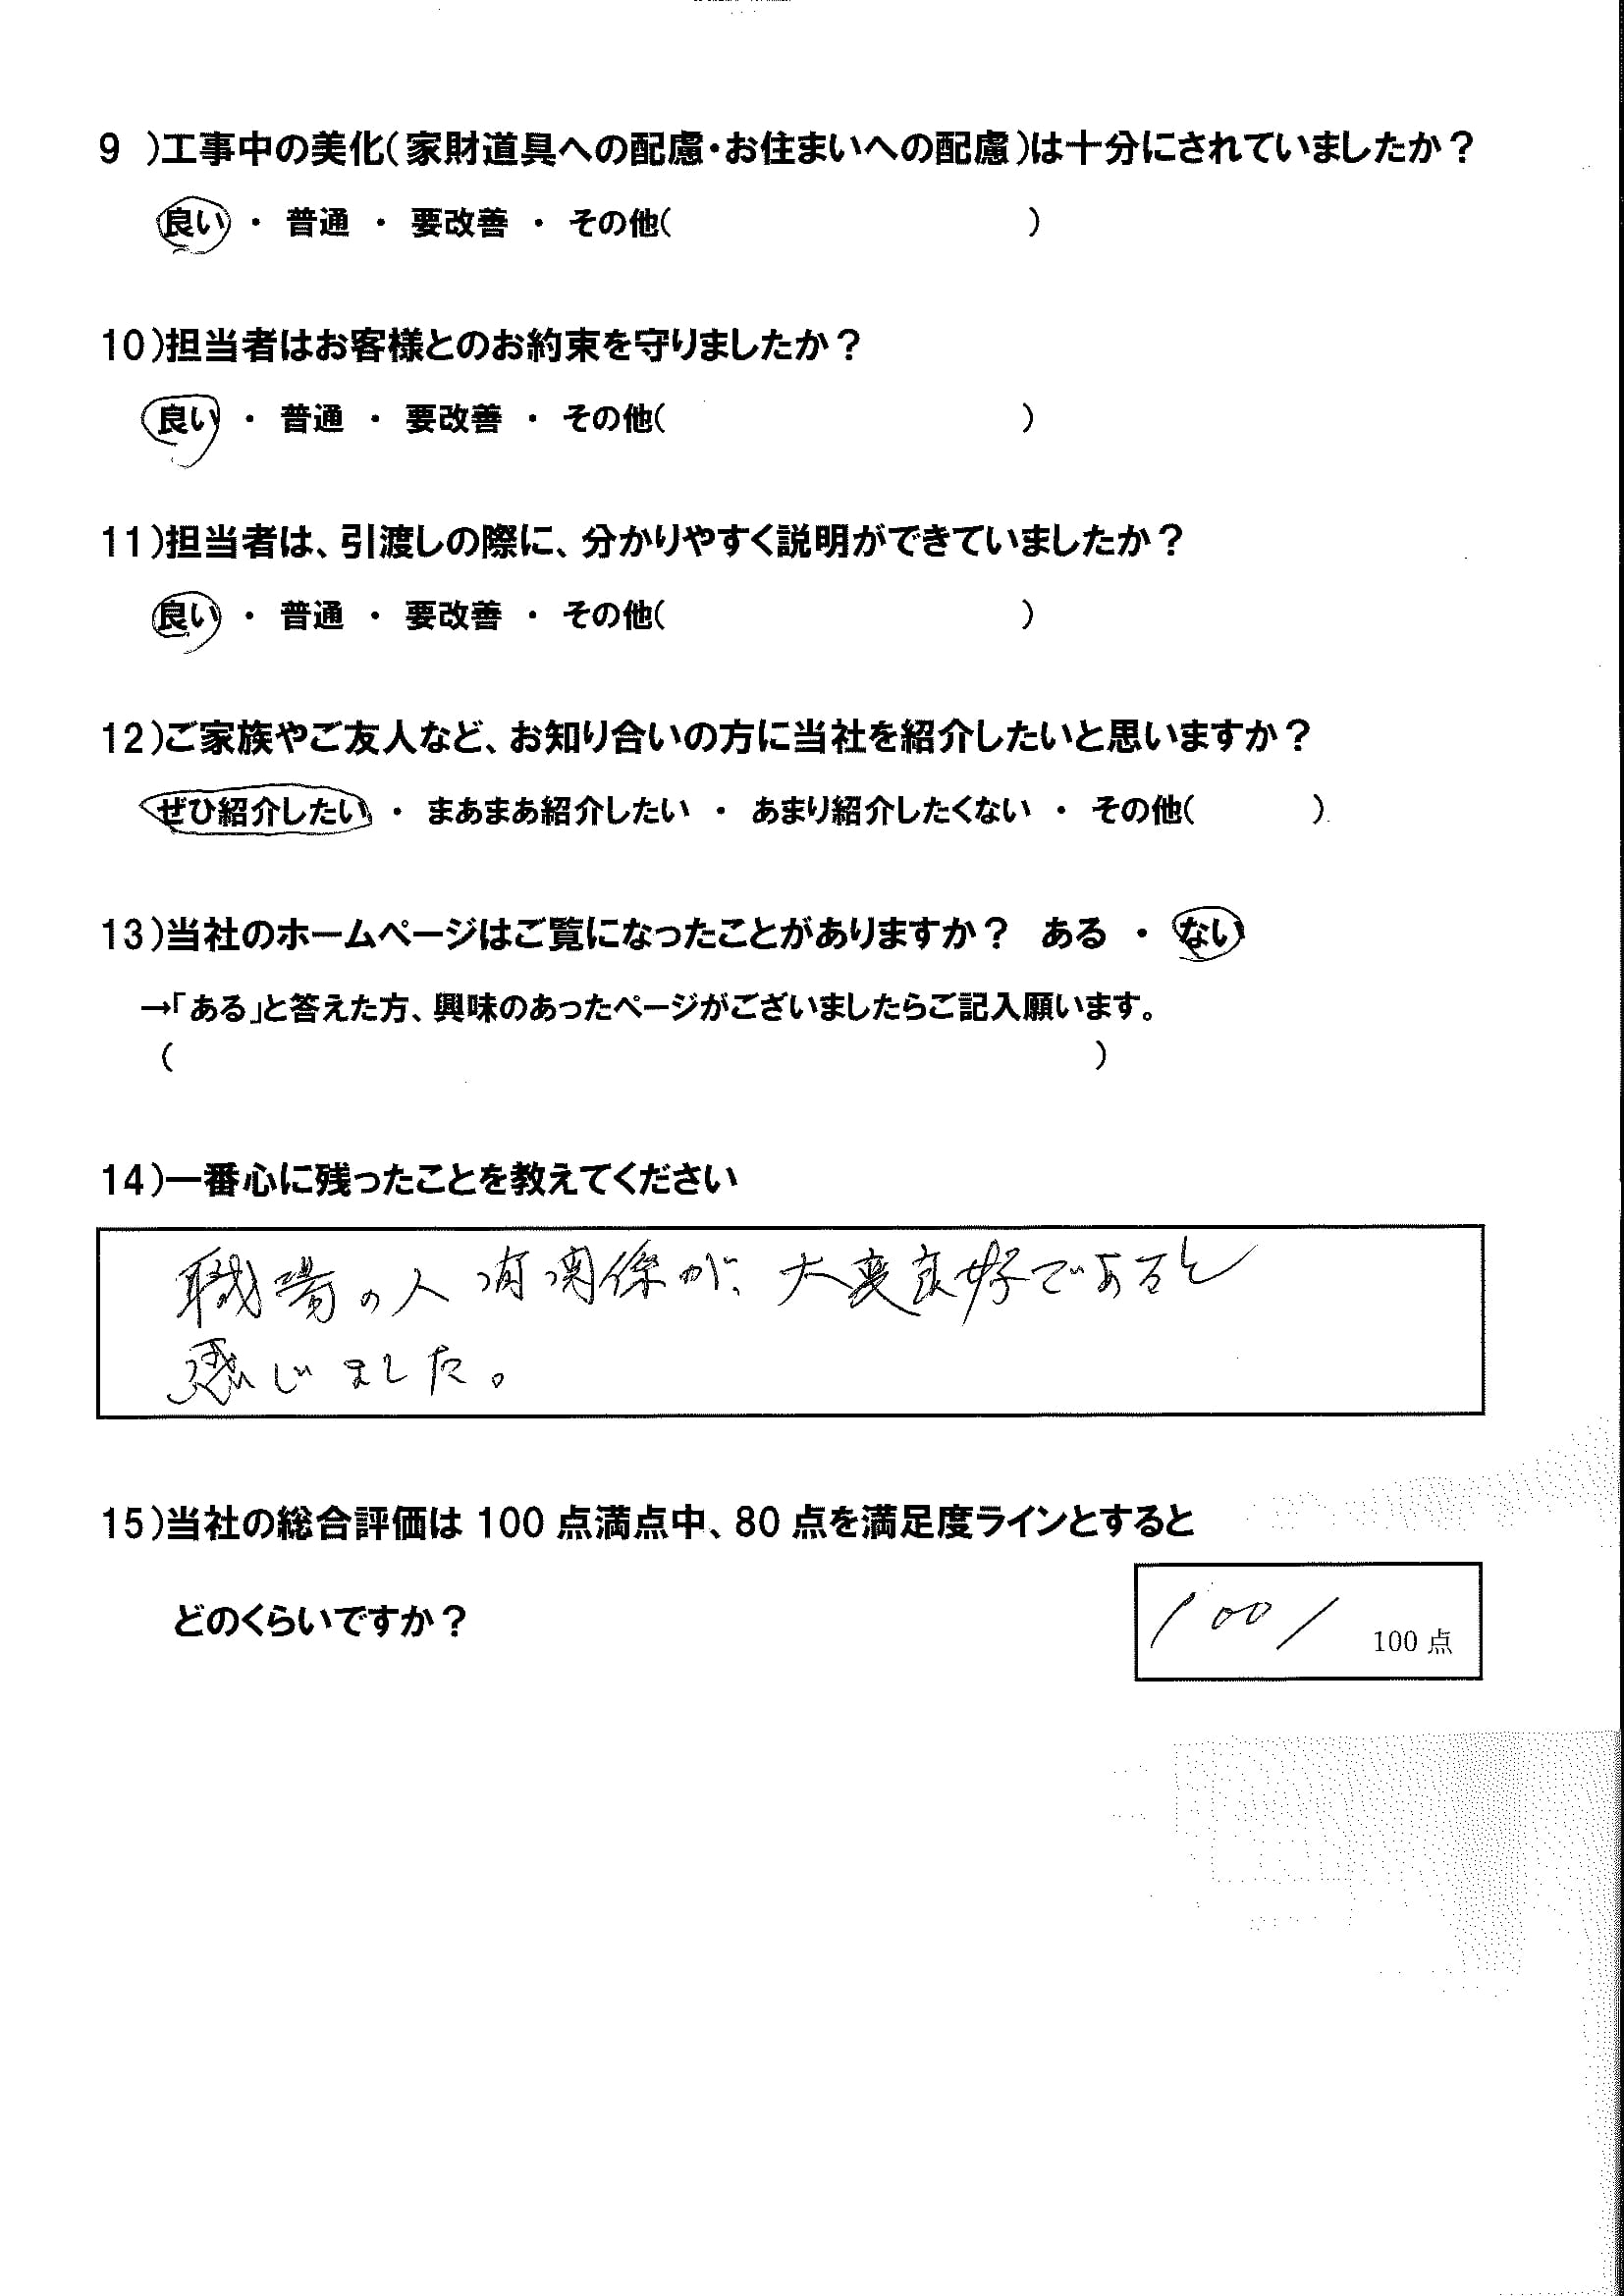 9 )工事中の美化(家財道具への配慮・お住まいへの配慮)は十分にされていましたか？
良い ・ 普通 ・ 要改善 ・ その他( )
10)担当者はお客様とのお約束を守りましたか？
良い ・ 普通 ・ 要改善 ・ その他( )
11)担当者は、引渡しの際に、分かりやすく説明ができていましたか？
良い ・ 普通 ・ 要改善 ・ その他( )
12)ご家族やご友人など、お知り合いの方に当社を紹介したいと思いますか？
ぜひ紹介したい ・ まあまあ紹介したい ・ あまり紹介したくない ・ その他( )
13)当社のホームページはご覧になったことがありますか？ ある ・ ない
→「ある」と答えた方、興味のあったページがございましたらご記入願います。
( )
14)一番心に残ったことを教えてください
職場の人間関係が、大変良好であると
感じました。
15)当社の総合評価は 100 点満点中、80 点を満足度ラインとすると
どのくらいですか？
100/ 100 点